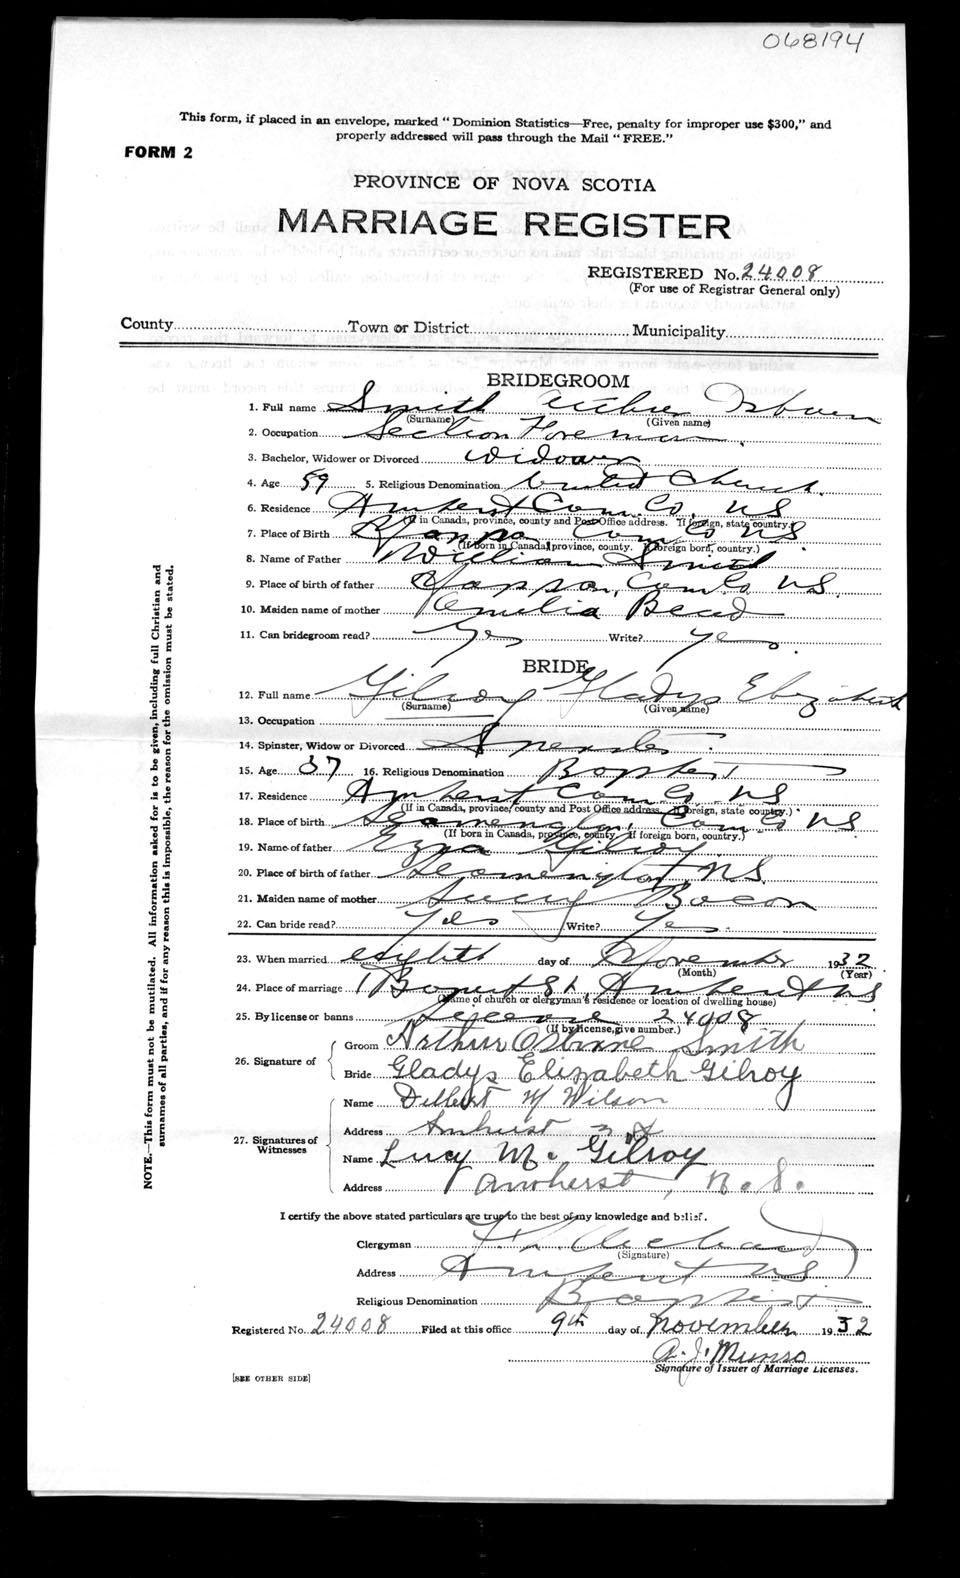 068194
This form, if placed in an envelope, marked "Dominion Statistics—Free, penalty for improper use $300," and
properly addressed will pass through the Mail "FREE."
FORM 2
PROVINCE OF NOVA SCOTIA
MARRIAGE REGISTER
REGISTERED No. 24008
(For use of Registrar General only)
County Town or District Municipality
BRIDEGROOM
1. Full name Smith Arthur Osburn
(Surname) (Given name)
2. Occupation Section Foreman
3. Bachelor, Widower or Divorced Widower
4. Age 59 5. Religious Denomination United Church
6. Residence Amherst Cum. Co. NS
(If in Canada, province, county and Post Office address. If foreign, state country.)
7. Place of Birth Cum Co NS.
(If born in Canada, province, county. If foreign born, country.)
8. Name of Father William Smith
9. Place of birth of father Cum Co NS.
10. Maiden name of mother
11. Can bridegroom read? Yes Write? Yes
BRIDE
12. Full name Gilroy Gladys Elizabeth
(Surname) (Given name)
13. Occupation
14. Spinster, Widow or Divorced Spinster
15. Age 37 16. Religious Denomination Baptist
17. Residence Amherst Cum Co NS
(If in Canada, province, county and Post Office address. If foreign, state country.)
18. Place of birth Leamington, Cum Co NS
(If born in Canada, province, county. If foreign born, country.)
19. Name of father Ezra Gilroy
20. Place of birth of father Leamington NS.
21. Maiden name of mother Lucy Bacon
22. Can bride read? Yes Write? Yes
23. When married eighth day of November 1932
(Month) (Year)
24. Place of marriage St Amherst NS
(Name of church or clergyman's residence or location of dwelling house)
25. By license or banns License 24008
(If by license, give number.)
26. Signature of
Groom Arthur Osborne Smith
Bride Gladys Elizabeth Gilroy
27. Signatures of Witnesses
Name Delbert W Wilson
Address Amherst N S
Name Lucy M. Gilroy
Address Amherst, N. S.
I certify the above stated particulars are true to the best of my knowledge and belief.
Clergyman
(Signature)
Address Amherst NS.
Religious Denomination Baptist
Registered No. 24008 Filed at this office 9th day of November 1932
A. J. Munro
Signature of Issuer of Marriage Licenses.
[SEE OTHER SIDE]
NOTE.—This form must not be mutilated. All information asked for is to be given, including full Christian and
surnames of all parties, and if for any reason this is impossible, the reason for the omission must be stated.